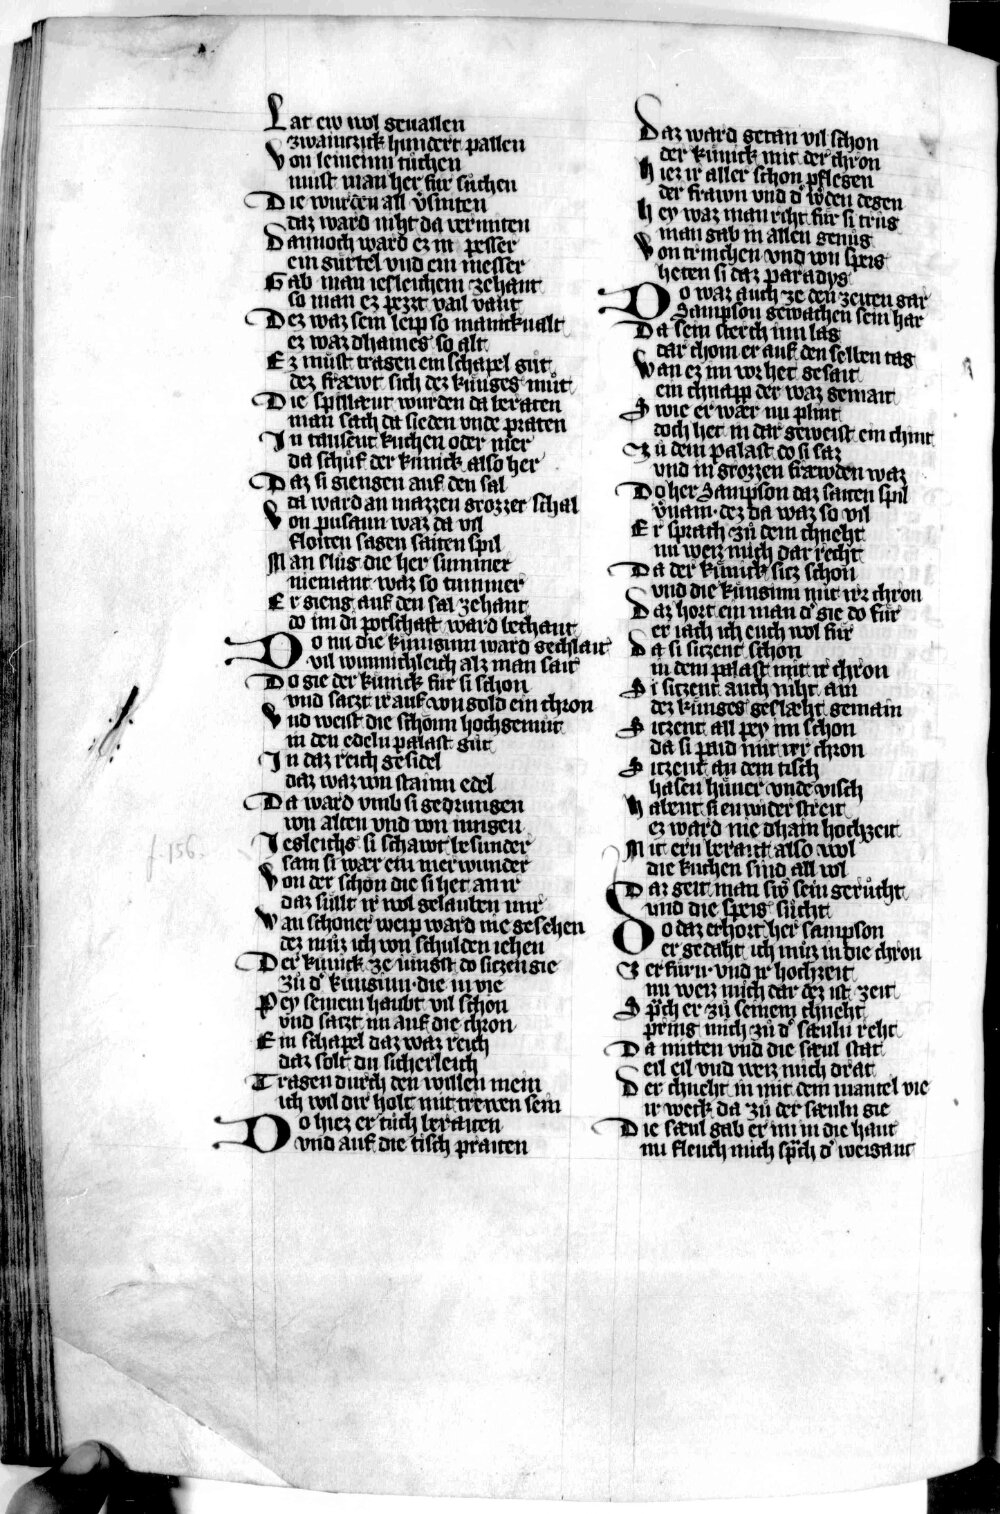 Lat ew wol geuallen
zwaintzich hundert pallen
Von seineim tuchen
must man her fur suchen
Die wurden all v̓sniten
daz ward niht da vermiten
Dannoch ward ez in pesser
ein gürtel vnd ein messer
Gab man iesleichem zehant
so man ez pezzt vail vant
Dez waz sein leip so manickualt
ez waz dhaines so alt
Ez must tragen ein schapel gut
dez fræwt sich dez küniges mut
Die spillæut wurden da beraten
man sach da sieden vnde praten
In tausent kuchen oder mer
da schuf der kunick also her
Daz si giengen auf den sal
da ward an mazzen grozzer schal
Von pusaun waz da vil
floiten sagen saiten spil
Man slug die her sumner
niemant waz so tummer
Er gieng auf den sal zehant
do im di potschaft ward bechant
Do nu die kuniginn ward bechlait
vil wunnichleich alz man sait
Do gie der kunick fur si schon
vnd satzt ir auf von gold ein chron
Vnd weist die schonn hochgemut
in den edeln palast gut
In daz reich gesidel
daz waz von stainn edel
Da ward vmb si gedrungen
von alten vnd von iungen
Iegleichs si schawt besunder
sam si wær ein merwunder
Von der schon die si het an ir
daz sullt ir wol gelauben mir
Wan schoner weip ward nie gesehen
dez muz ich von schulden iehen
Der kunick ze iungst do sitzen gie
zu d̓ kuniginn die in vie
Pey seinem haubt vil schon
vnd satzt im auf die chron
Ein schapel daz waz reich
daz solt du sicherleich
Tragen durch den willen mein
ich wil dir holt mit trewen sein
Do hiez er tuch beraiten
vnd auf die tisch praiten
Daz ward getan vil schon
der kunick mit der chron
Hiez ir aller schon pflegen
der frawn vnd d̓ w̓den degen
Hey waz man riht fur si trug
man gab in allen genug
Von trinchen vnd von speis
heten si daz paradys
Do waz auch ze den zeiten gar
Sampson gewachen sein har
Da sein sterch inn lag
dar chom er auf den selben tag
Wan ez im vor het gesait
ein chnapp der waz gemait
Swie er wær nu plint
doch het in dar geweist ein chint
Zu dem palast do si saz
vnd in grozzen fræwden waz
Do her Sampson daz saiten spil
v̓nam dez da waz so vil
Er sprach zu dem chneht
nu weiz mich dar recht
Da der kunick sitz schon
vnd die kuniginn mit irr chron
Daz hort ein man d̓ gie do fur
er iach ich euch wol fur
Da si sitzent schon
in dem palast mit ir chron
Si sitzent auch niht ain
dez kuniges geslæht gemain
Sitzent all pey im schon
da si paid mit irr chron
Sitzent an dem tisch
hasen huner vnde visch
Habent si enwider streit
ez ward nie dhain hochzeit
Mit ern berait also wol
die kuchen sind all vol
Dar geit man sw̓ sein gerucht
vnd die speis sucht
Do daz erhort her sampson
er gedaht ich muz in die chron
Zerfurn vnd ir hochzeit
nu weiz mich dar dez ist zeit
Sp̃ch er zu seinem chneht
pring mich zu d̓ sæuln reht
Da mitten vnd die sæul stat
eil eil vnd weiz mich drat
Der chneht in mit dem mantel vie
ir weck da zu der sæuln gie
Die sæul gab er im in die hant
nu fleuch mich sp̃ch d̓ weigant
f. 156.